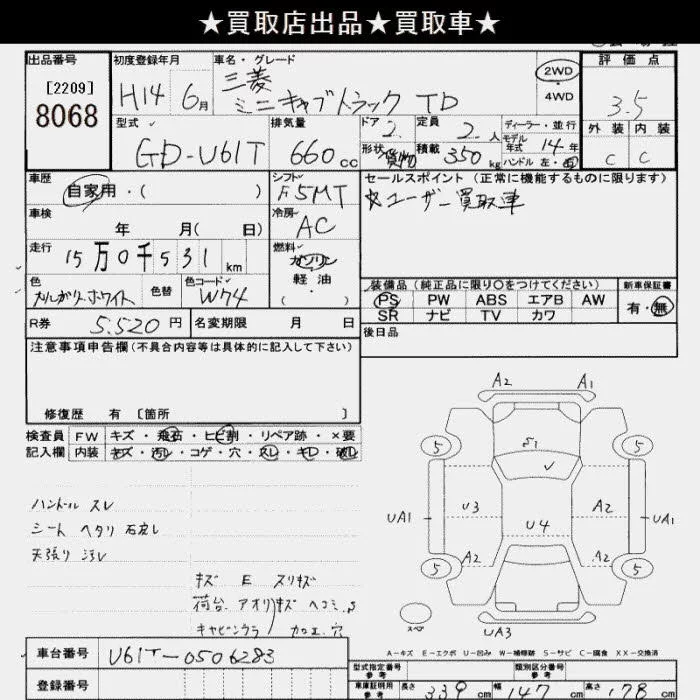 ★買取店出品★買取車★
出品番号 初度登録年月 車名・グレード 評価点
[2209] 8068
H14 6月
三菱
ミニキャブトラック TD
2WD
4WD
3.5
型式 排気量 ドア 定員 ディーラー・並行 外装 内装
GD-U61T 660cc 2. 2.人 モデル年式 14年
形状 貨物 積載 350kg ハンドル 左・右 C C
車歴 シフト セールスポイント(正常に機能するものに限ります)
自家用・( ) F5MT
☆ユーザー買取車
車検 年 月( 日) 冷房 AC
走行 15万0千531km 燃料 ガソリン
軽油
( )
色 色替 色コード 装備品(純正品に限り○をつけてください) 新車保証書
カルガリーホワイト W74 PS PW ABS エアB AW 有・無
SR ナビ TV カワ
R券 5.520円 名変期限 月 日 後日品
注意事項申告欄(不具合内容等は具体的に記入して下さい)
修復歴 有 [箇所 ]
検査員 FW キズ・飛石・ヒビ割・リペア跡・×要
記入欄 内装 キズ・汚レ・コゲ・穴・スレ・キレ・破レ
ハンドル スレ
シート ヘタリ
天張り 汚レ
キズ E スリキズ
荷台.アオリ キズ ヘコミ.S
キャビンウラ 加工.穴
A2 A1
5 S1 5
UA1 U3 A2 UA1
U4
A2 A2
5 5
スペア UA3
A-キズ E-エクボ U-凹み W-補修跡 S-サビ C-腐食 XX-交換済
車台番号 U61T-0506283
登録番号
型式指定番号 参考 類別区分番号 参考
車庫証明用 参考 長さ 339cm 幅 147cm 高さ 178cm